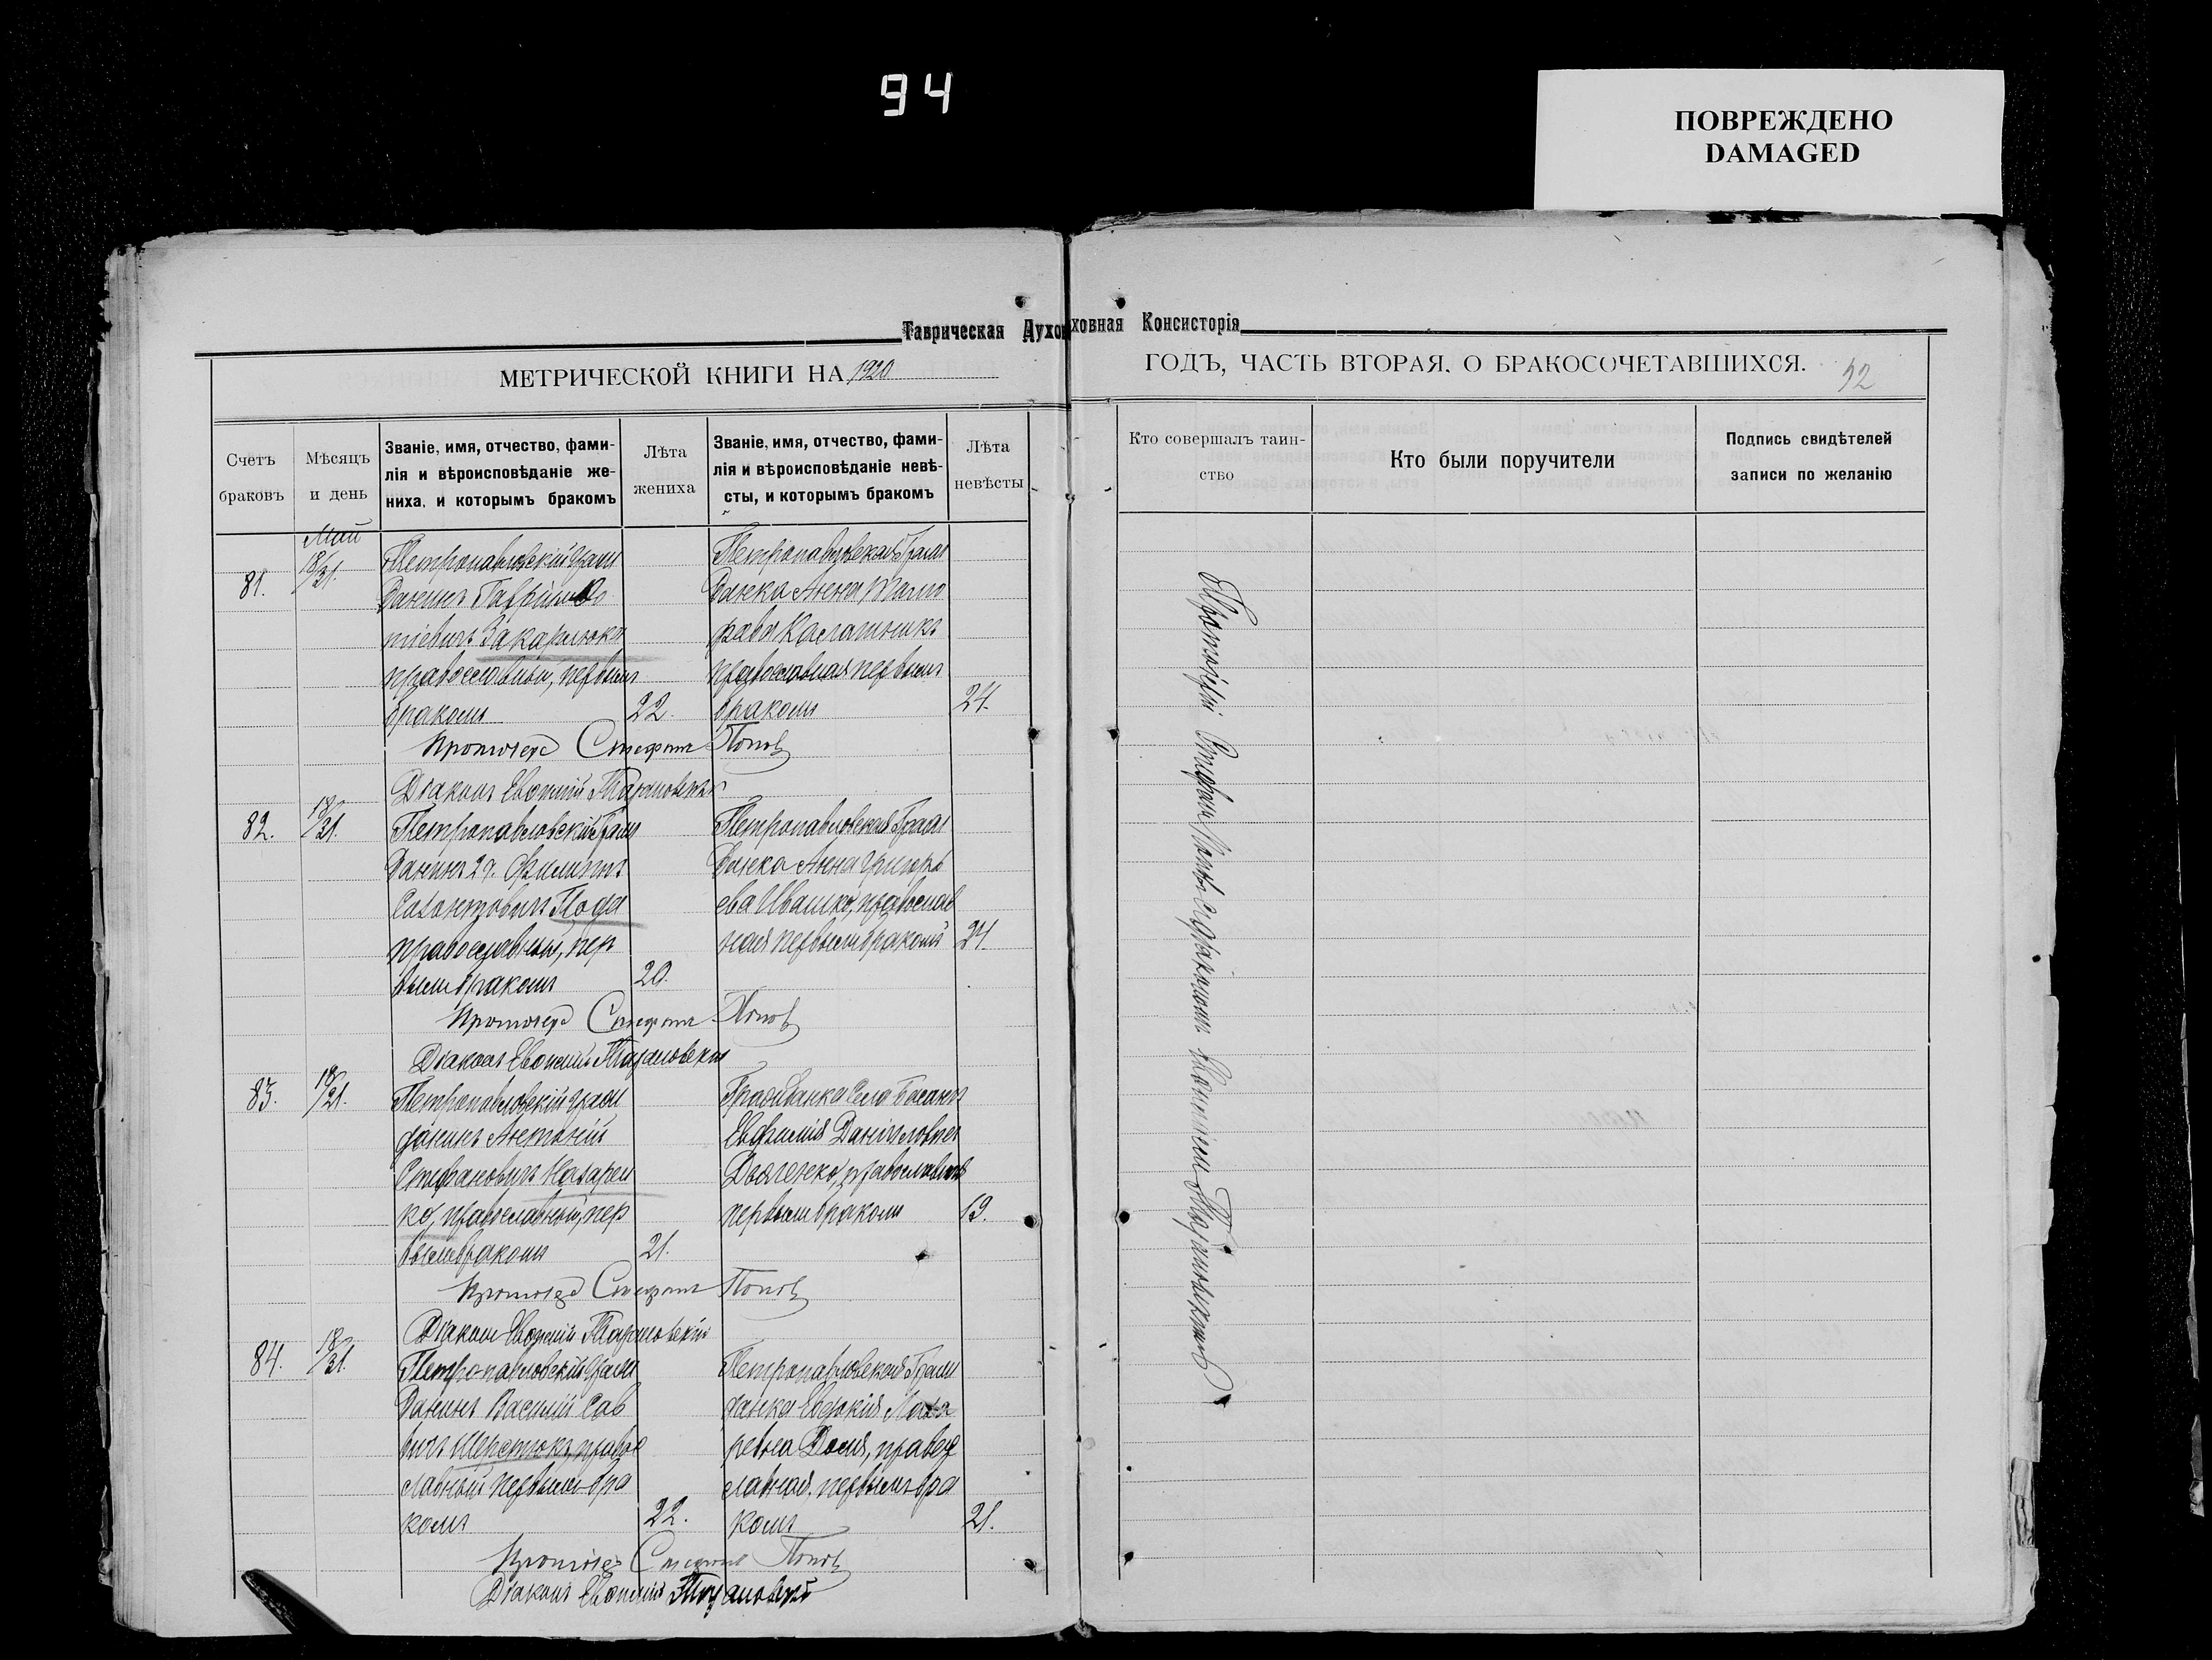 94
ПОВРЕЖДЕНО
DAMAGED
Таврическая Духовная Консисторія
МЕТРИЧЕСКОЙ КНИГИ НА 1920
ГОДЪ, ЧАСТЬ ВТОРАЯ, О БРАКОСОЧЕТАВШИХСЯ.
92
Счетъ браковъ
Мѣсяцъ и день
Званіе, имя, отчество, фами-
лія и вѣроисповѣданіе же-
ниха, и которымъ бракомъ
Лѣта жениха
Званіе, имя, отчество, фами-
лія и вѣроисповѣданіе невѣ-
сты, и которымъ бракомъ
Лѣта невѣсты
Кто совершалъ таин-
ство
Кто были поручители
Подпись свидѣтелей
записи по желанію
Май
81.
18/31.
Петропавловскій граж
данинъ Гавріилъ
Закарлюка
православный, первымъ
бракомъ
22.
Петропавловская граж
данка Анна
православная первымъ
бракомъ
24.
Протоіерей Стефанъ Поповъ
Діаконъ Евфимій Тарановскій
82.
18/31.
Петропавловскій граж
данинъ Филиппъ
Пода
православный, пер
вымъ бракомъ
20.
Петропавловская граж
данка Анна Григорь
ева Ивашко, православ
ная первымъ бракомъ
24.
Протоіерей Стефанъ Поповъ
Діаконъ Евфимій Тарановскій
83.
18/31.
Петропавловскій граж
данинъ Антоній
Стефановичъ Назарен
ко, православный, пер
вымъ бракомъ
21.
Гражданка села
Евфимія Даниловна
православная
первымъ бракомъ
19.
Протоіерей Стефанъ Поповъ
Діаконъ Евфимій Тарановскій
84.
18/31.
Петропавловскій граж
данинъ Василій Сав
вичъ Шерстюкъ, право
славный первымъ бра
комъ
22.
Петропавловская граж
данка Евдокія Маха
рьевна православ
славная, первымъ бра
комъ
21.
Протоіерей Стефанъ Поповъ
Діаконъ Евфимій Тарановскій
Протоіерей Стефанъ Поповъ съ діакономъ Тарановскимъ